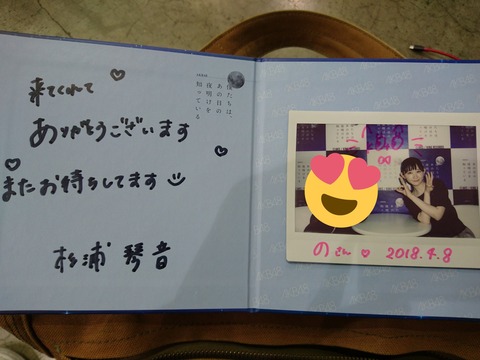 来てくれて
ありがとうございます
またお待ちしてます
杉浦 琴音
僕たちは、
あの日の
夜明けを
知っている
AKB48
のさん 2018.4.8